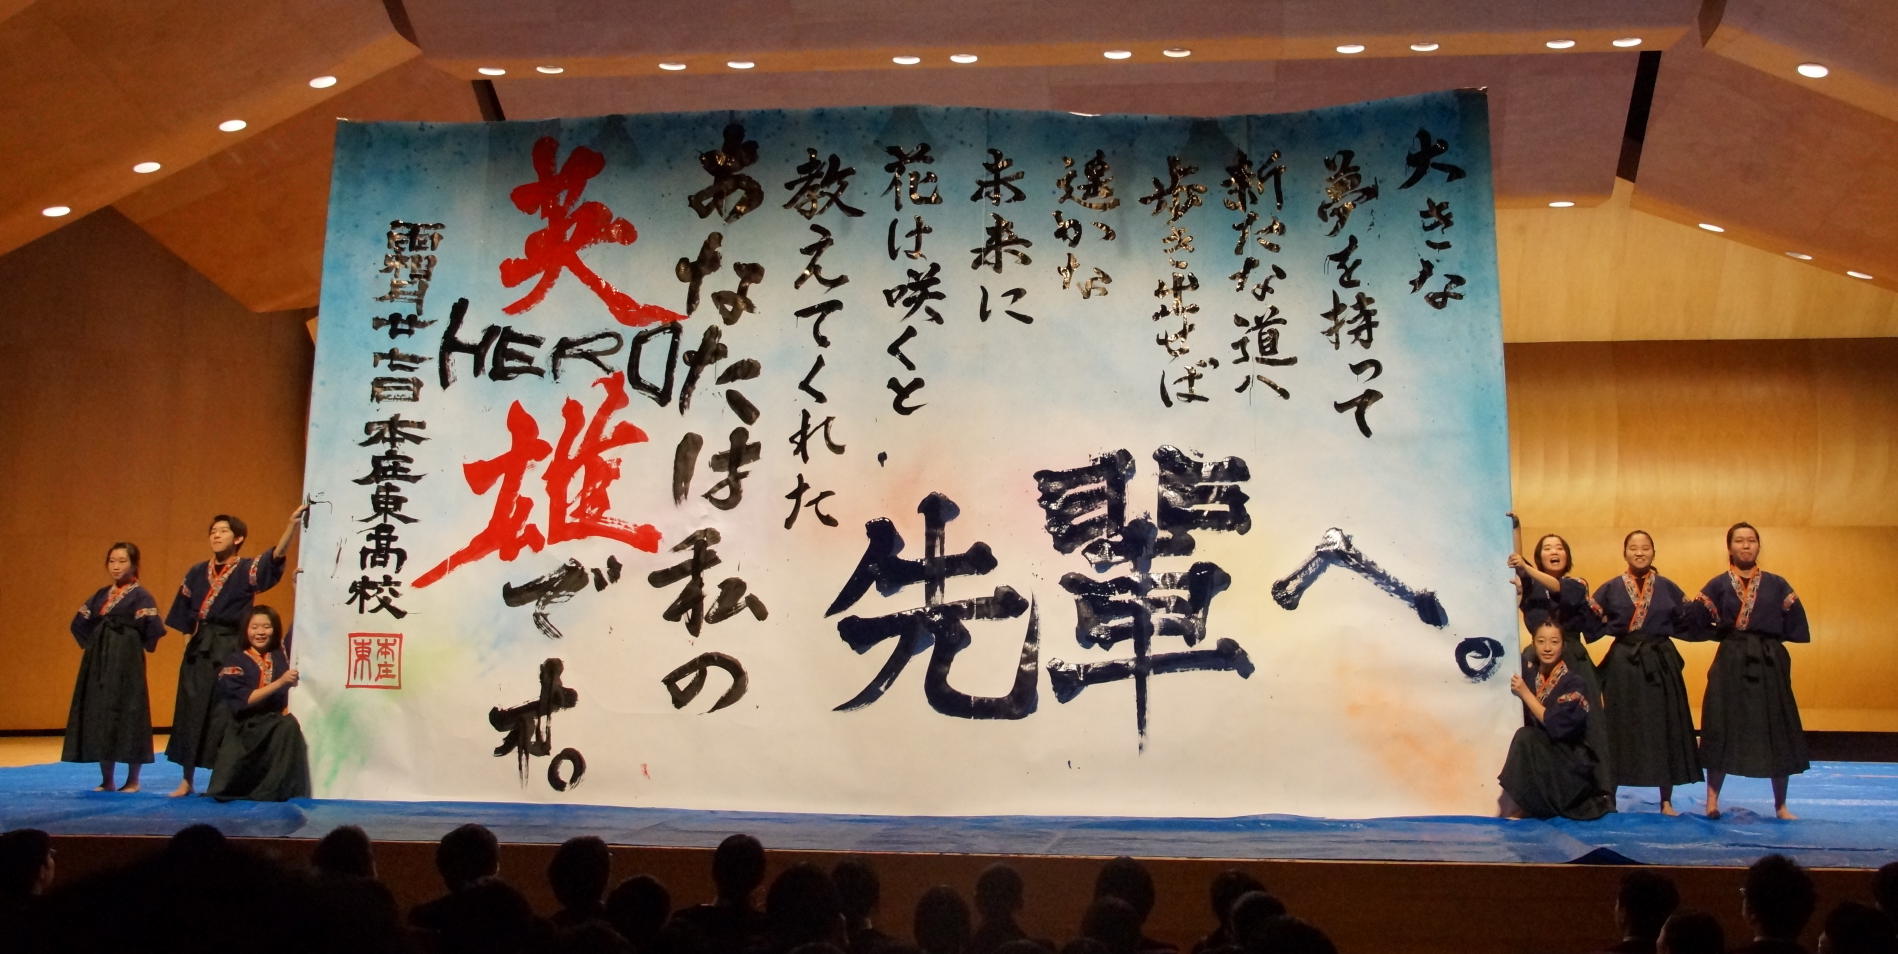 大きな
夢を持って
新たな道へ
歩き出せば
遥かな
未来に
花は咲くと
教えてくれた
先輩へ。
あなたは私の
英雄です。
HERO
霜月廿七日 本庄東高校
本庄東